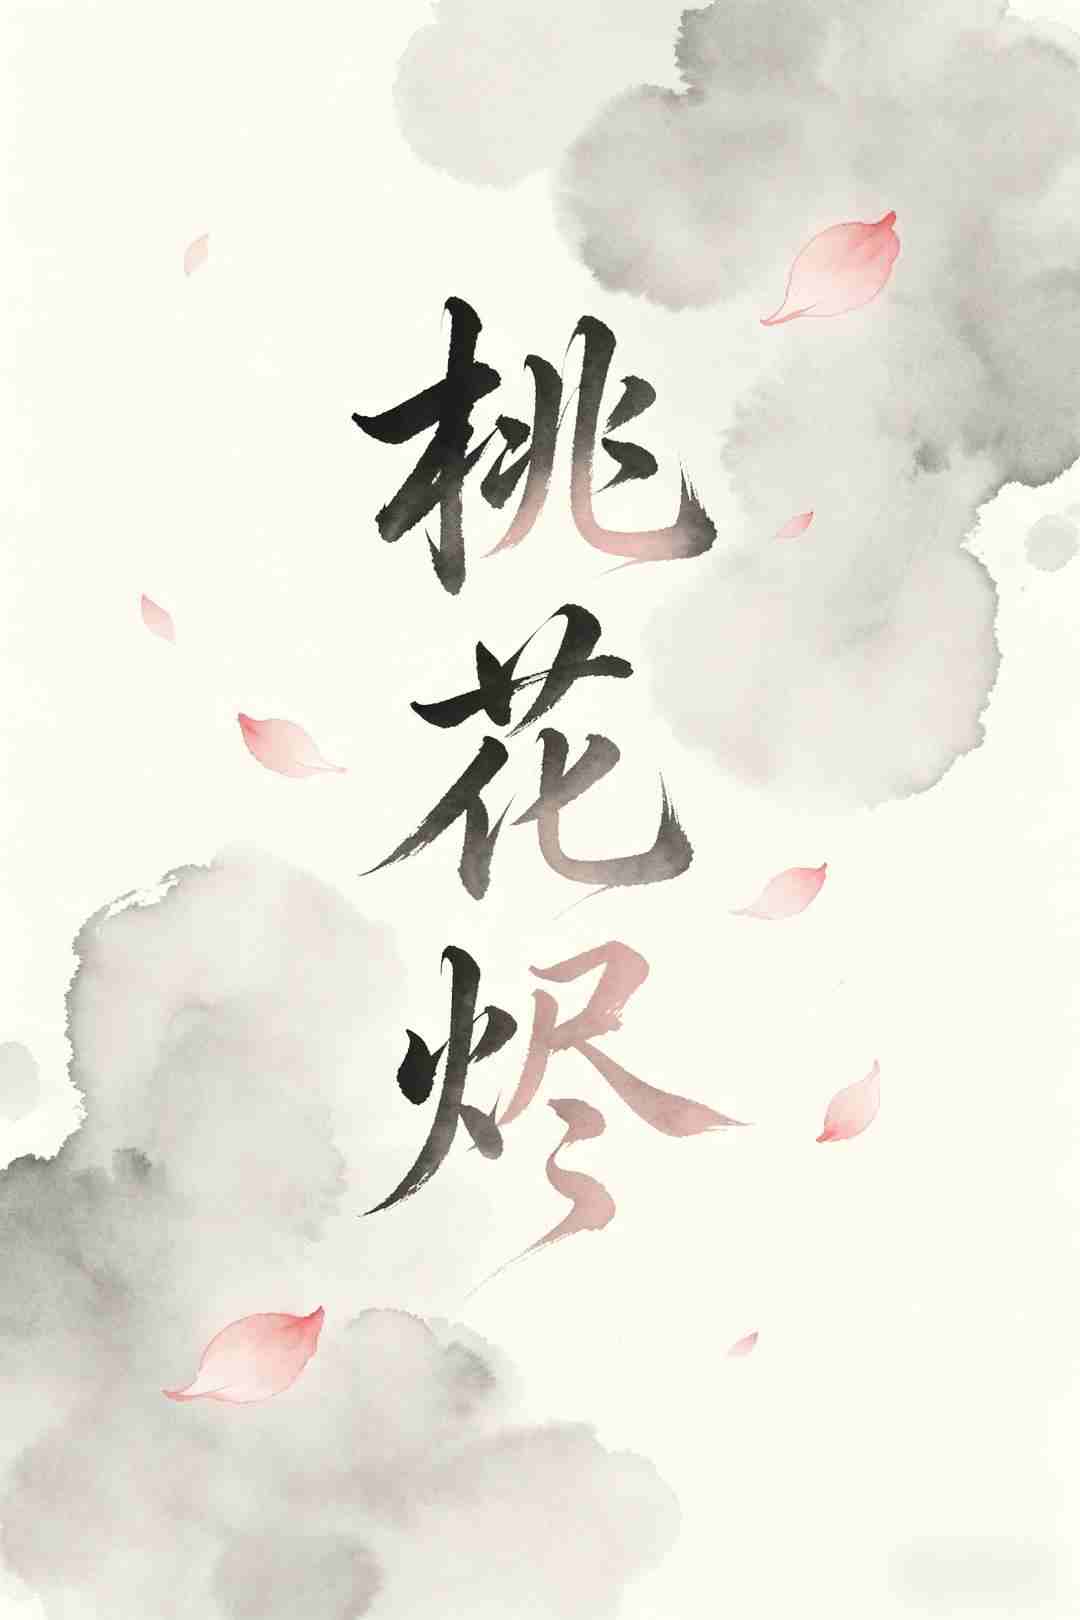 桃花烬